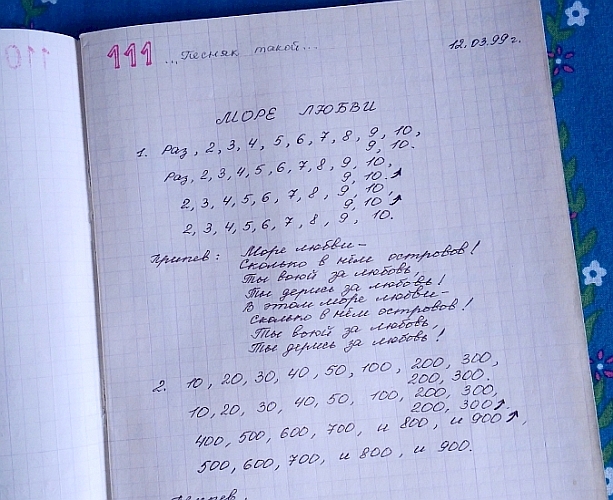 111 ...Песняк такой... 12.03.99 г.
МОРЕ ЛЮБВИ
1. Раз, 2, 3, 4, 5, 6, 7, 8, 9, 10,
9, 10.
Раз, 2, 3, 4, 5, 6, 7, 8, 9, 10,
9, 10.
2, 3, 4, 5, 6, 7, 8, 9, 10,
9, 10
2, 3, 4, 5, 6, 7, 8, 9, 10.
Припев: Море любви –
Сколько в нём островов!
Ты воюй за любовь,
Ты дерись за любовь!
В этом море любви –
Сколько в нём островов!
Ты воюй за любовь,
Ты дерись за любовь!
2. 10, 20, 30, 40, 50, 100, 200, 300,
200, 300.
10, 20, 30, 40, 50, 100, 200, 300,
200, 300
400, 500, 600, 700, и 800, и 900,
500, 600, 700, и 800, и 900.
Припев:
110